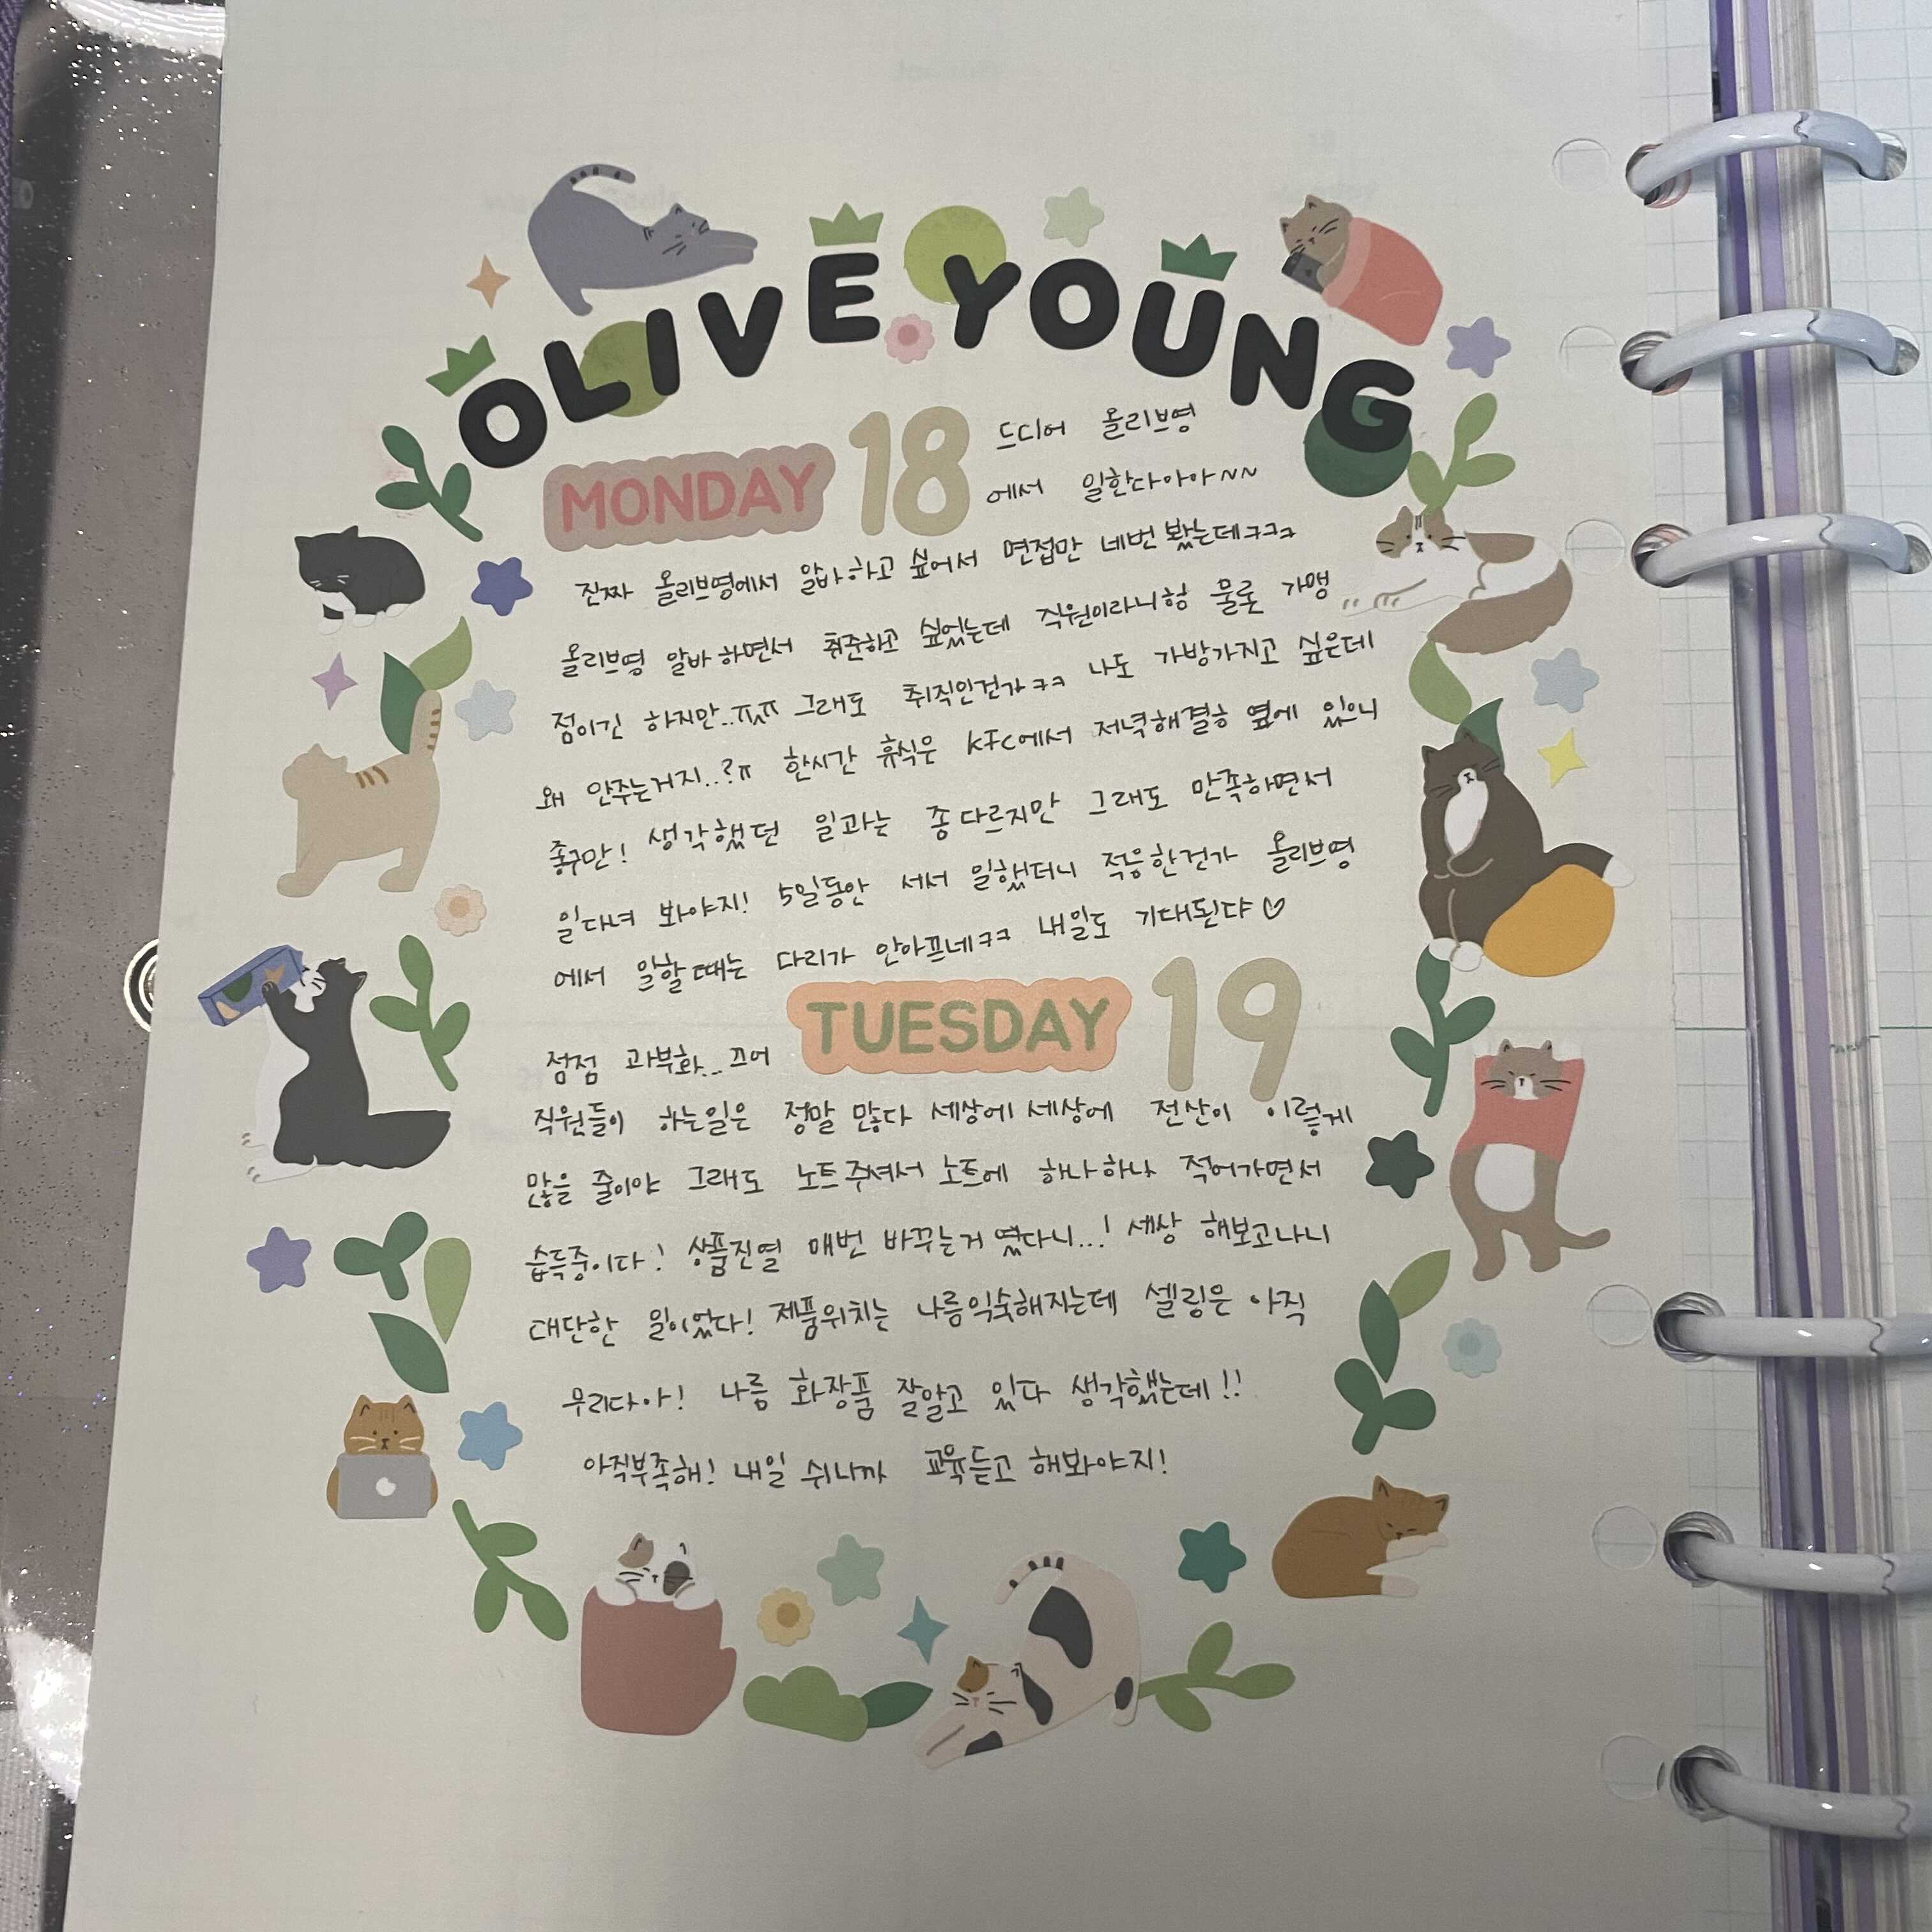 OLIVE YOUNG
MONDAY 18 드디어 올리브영
에서 일한다아아~~
진짜 올리브영에서 알바하고 싶어서 면접만 네번 봤는데ㅋㅋㅋ
올리브영 알바하면서 취준하고 싶었는데 직원이라니헝 물론 가맹
점이긴 하지만..ㅠㅠ 그래도 취직인건가ㅋㅋ 나도 가방가지고 싶은데
왜 안주는거지..?ㅠ 한시간 휴식은 KFC에서 저녁해결ㅎ 옆에 있으니
좋구만! 생각했던 일과는 좀 다르지만 그래도 만족하면서
일다녀 봐야지! 5일동안 서서 일했더니 적응한건가 올리브영
에서 일할때는 다리가 안아프네ㅋㅋ 내일도 기대된댜♡
점점 과부화... 끄어 TUESDAY 19
직원들이 하는일은 정말 많다 세상에 세상에 전산이 이렇게
많을 줄이야 그래도 노트주셔서 노트에 하나하나 적어가면서
습득중이다! 상품진열 매번 바꾸는거 였다니...! 세상 해보고나니
대단한 일이었다! 제품위치는 나름익숙해지는데 셀링은 아직
무리다아! 나름 화장품 잘알고 있다 생각했는데!!
아직부족해! 내일 쉬니까 교육듣고 해봐야지!